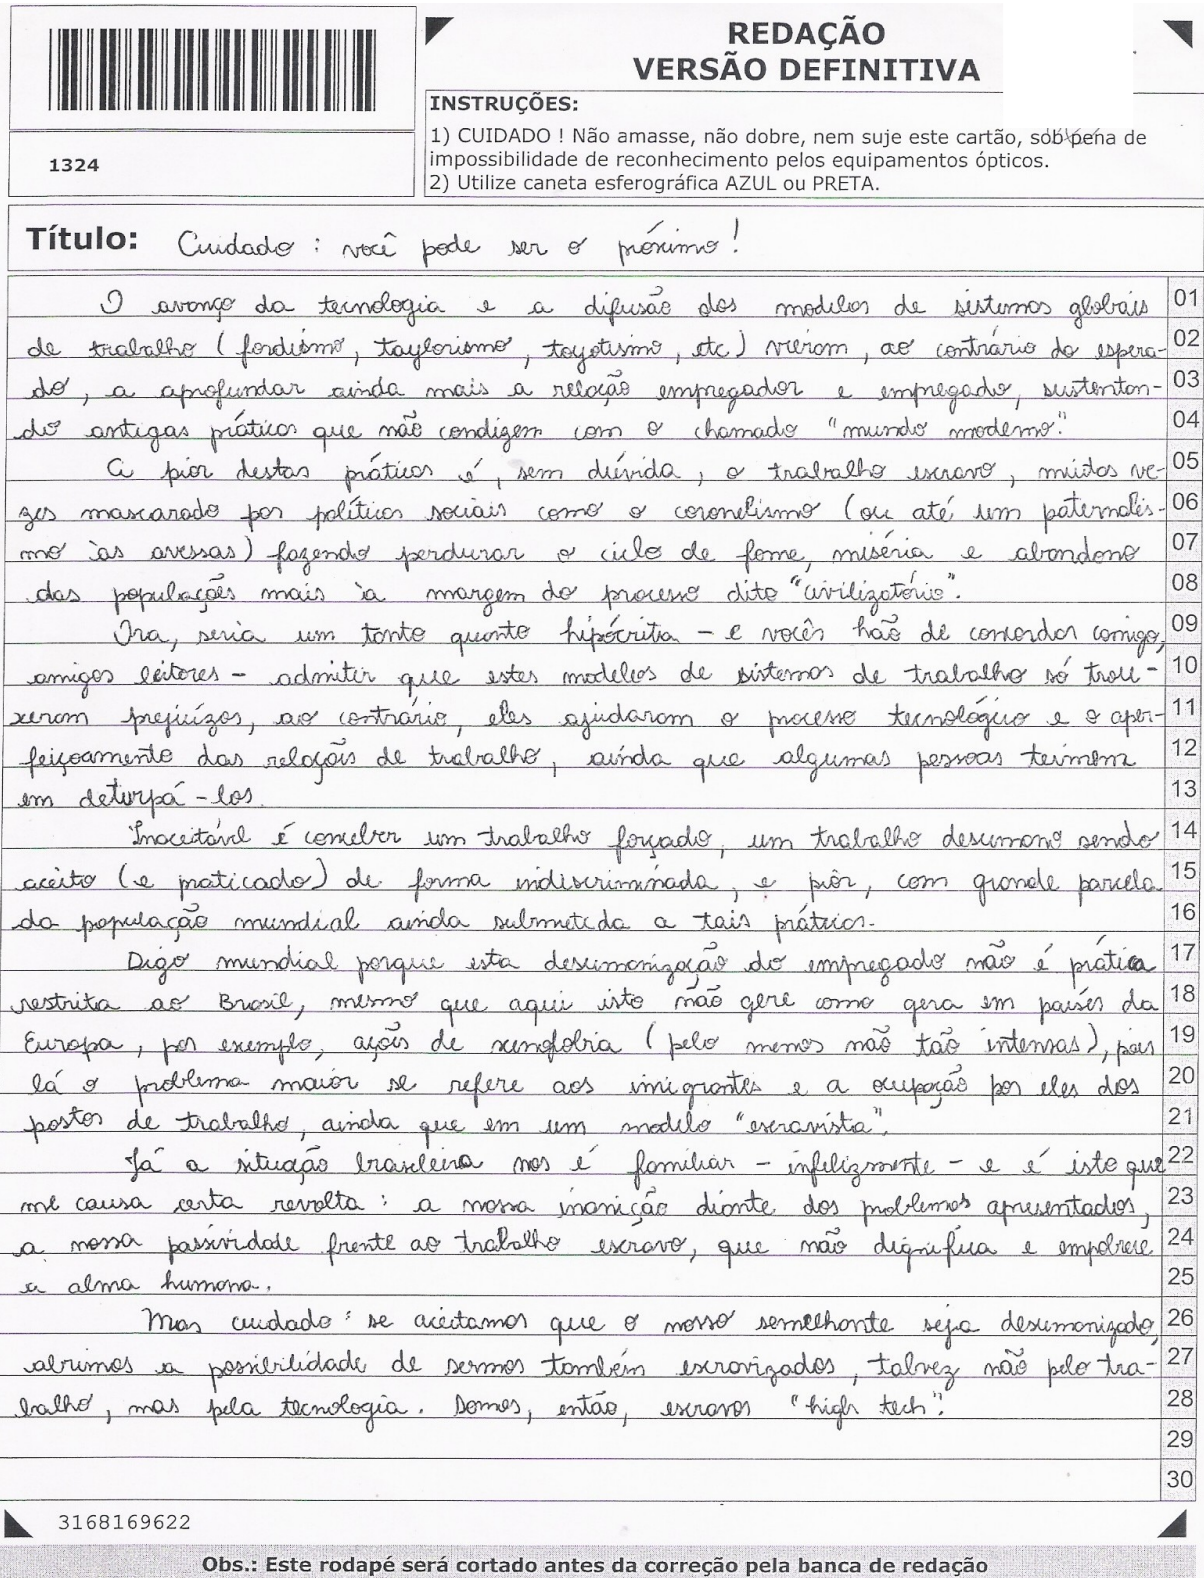 REDAÇÃO
VERSÃO DEFINITIVA
INSTRUÇÕES:
1) CUIDADO ! Não amasse, não dobre, nem suje este cartão, sob pena de
impossibilidade de reconhecimento pelos equipamentos ópticos.
2) Utilize caneta esferográfica AZUL ou PRETA.
1324
Título: Cuidado : você pode ser o próximo!
O avanço da tecnologia e a difusão dos modelos de sistemas globais 01
de trabalho (fordismo, taylorismo, toyotismo, etc) vieram, ao contrário do espera- 02
do, a aprofundar ainda mais a relação empregador e empregado, sustentan- 03
do antigas práticas que não condizem com o chamado "mundo moderno". 04
A pior destas práticas é, sem dúvida, o trabalho escravo, muitas ve- 05
zes mascarado por políticas sociais como o coronelismo (ou até um paternalis- 06
mo às avessas) fazendo perdurar o ciclo de fome, miséria e abandono 07
das populações mais à margem do processo dito "civilizatório". 08
Ora, seria um tanto quanto hipócrita - e vocês hão de concordar comigo, 09
amigos leitores - admitir que estes modelos de sistemas de trabalho só trou- 10
xeram prejuízos, ao contrário, eles ajudaram o processo tecnológico e o aper- 11
feiçoamento das relações de trabalho, ainda que algumas pessoas teimem 12
em deturpá-los. 13
Inaceitável é conceber um trabalho forçado, um trabalho desumano sendo 14
aceito (e praticado) de forma indiscriminada, e pior, com grande parcela 15
da população mundial ainda submetida a tais práticas. 16
Digo mundial porque esta desumanização do empregado não é prática 17
restrita ao Brasil, mesmo que aqui isto não gere como gera em países da 18
Europa, por exemplo, ações de xenofobia (pelo menos não tão intensas), pois 19
lá o problema maior se refere aos imigrantes e a ocupação por eles dos 20
postos de trabalho, ainda que em um modelo "escravista". 21
Já a situação brasileira nos é familiar - infelizmente - e é isto que 22
me causa certa revolta : a nossa inanição diante dos problemas apresentados, 23
a nossa passividade frente ao trabalho escravo, que não dignifica e empobrece 24
a alma humana. 25
Mas cuidado : se aceitamos que o nosso semelhante seja desumanizado, 26
abrimos a possibilidade de sermos também escravizados, talvez não pelo tra- 27
balho, mas pela tecnologia. Somos, então, escravos "high tech". 28
29
30
3168169622
Obs.: Este rodapé será cortado antes da correção pela banca de redação